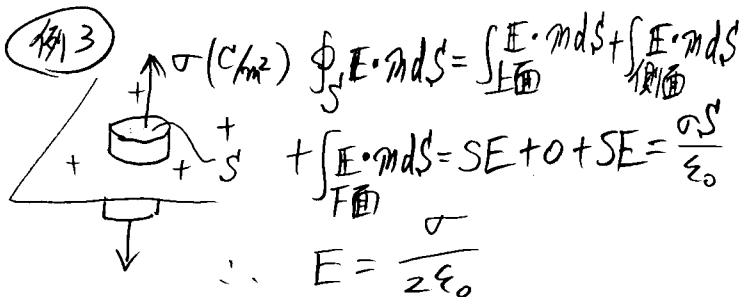 例3
σ(C/m²) ∮_S E・n dS = ∫_上面 E・n dS + ∫_側面 E・n dS
+ ∫_下面 E・n dS = SE + 0 + SE = σS/ε₀
S
+ + + +
∴ E = σ/2ε₀